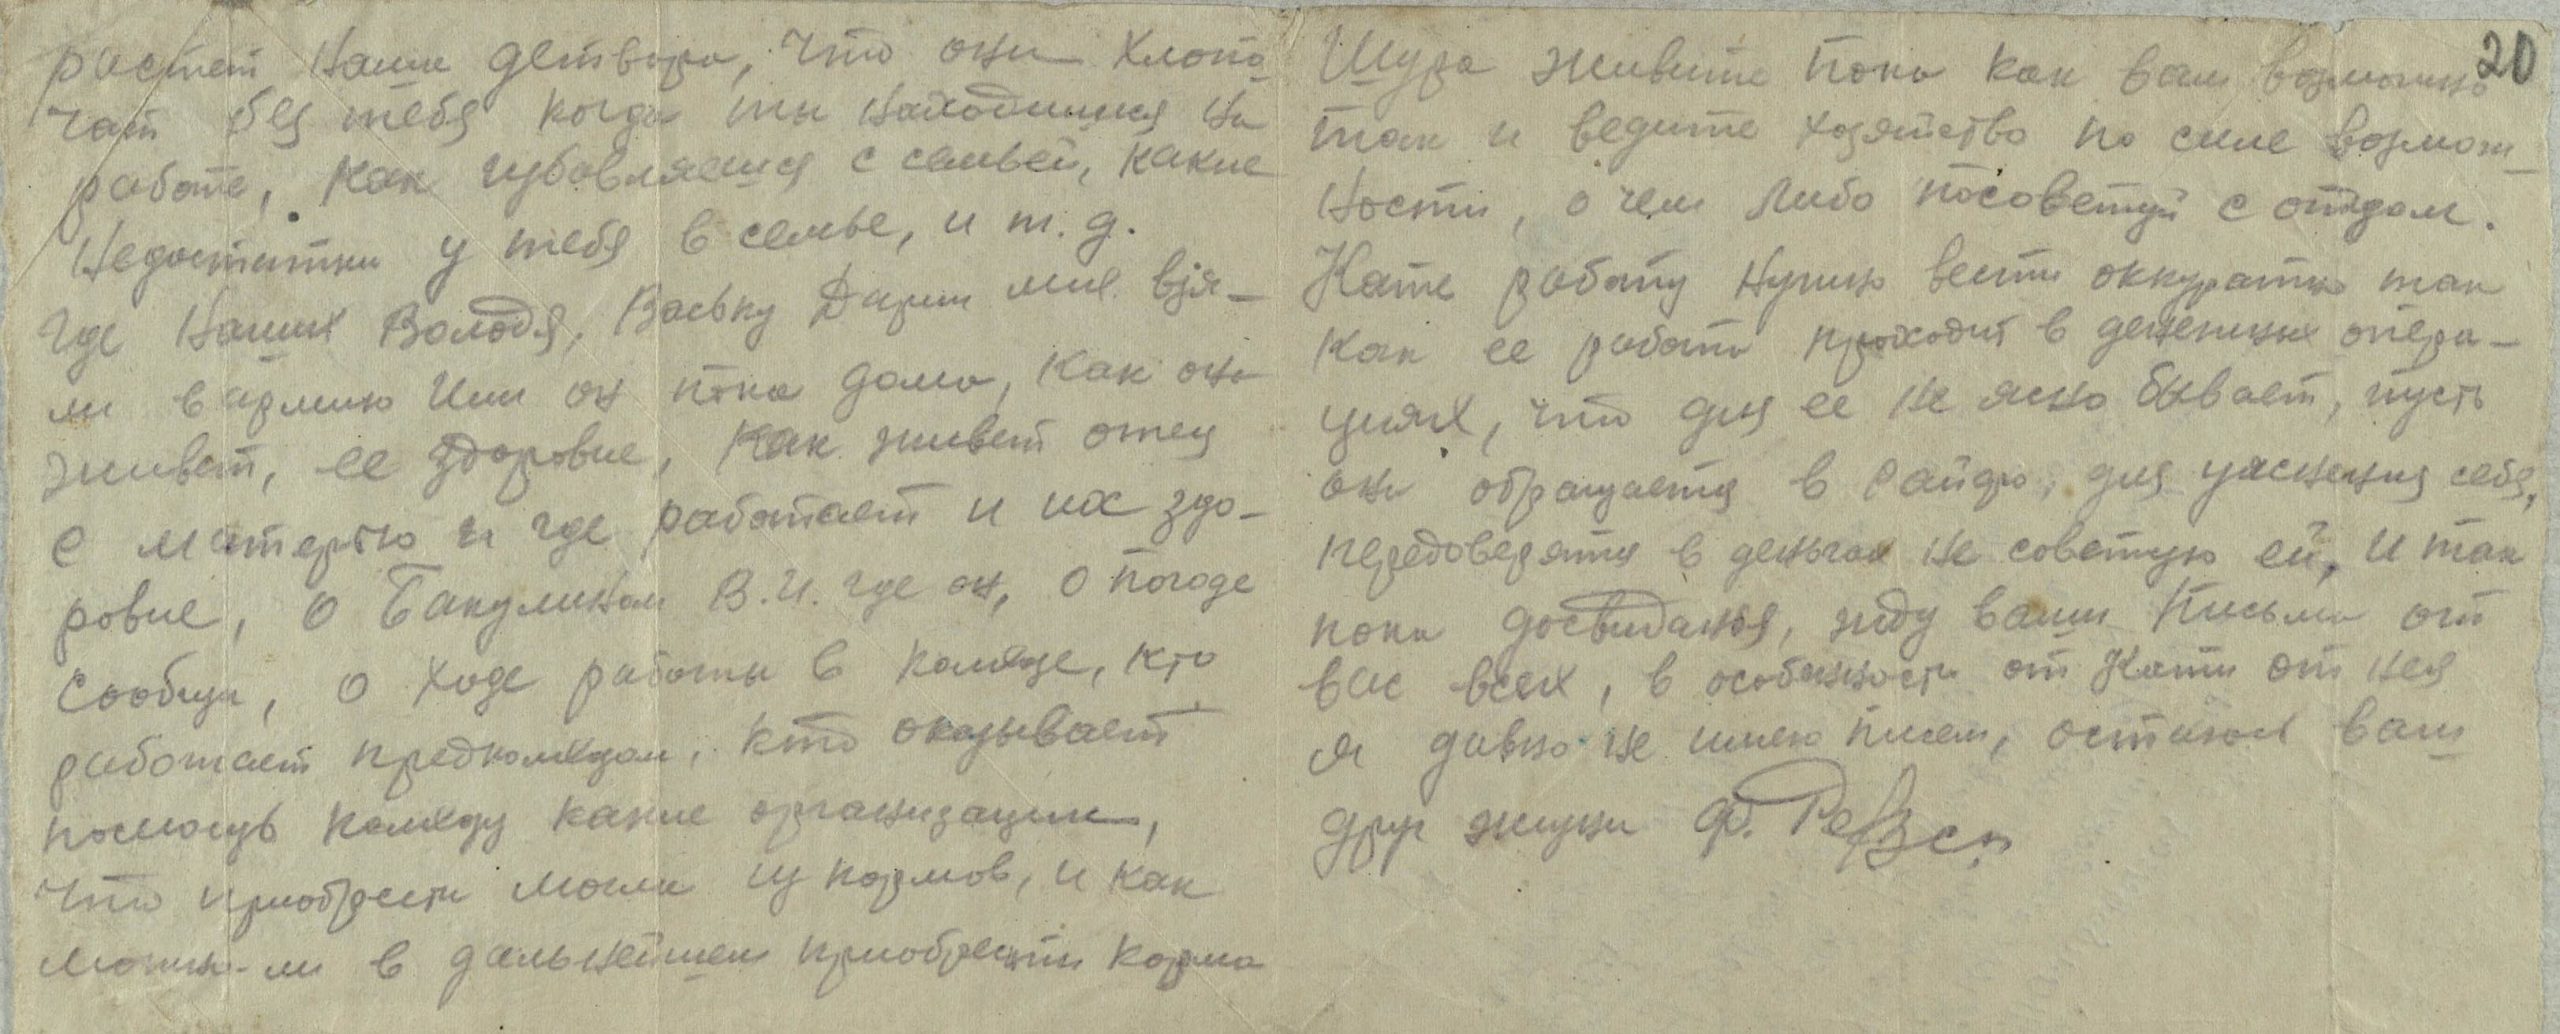 растет наши детвора, что они хлопо
чат без тебя когда ты находишися на
работе, как управляешся с семьей, какие
недостатки у тебя в семье, и т. д.
Где наших Володя, Ваську Дарьи мне взя-
ли в армию или он пока дома, как она
живет, ее здоровие, как живет отец
с матерью и где работает и их здо-
ровие, о Бакулином В.И. где он, о погоде
сообщи, о ходе работы в колхозе, кто
работает предколхозом, кто оказывает
помощь колхозу какие организации,
что приобрести могли из кормов, и как
можно-ли в дальнейшем приобрести корма
20
Шура живите пока как вам возможно
так и ведите хозяйство по силе возмож-
ности, о чем либо посоветуй с отцом.
Кате работу нужно вести аккуратно так
как ее работа проходит в денежных опера-
циях, что для ее не ясно бывает, пусть
она обращается в Райфо, для уяснения себя,
передоверятся в деньгах не советую ей, и так
пока досвидания, жду ваши письма от
вас всех, в особенности от Кати от нея
я давно не имею писем, остаюсь ваш
друг жизни Ф.